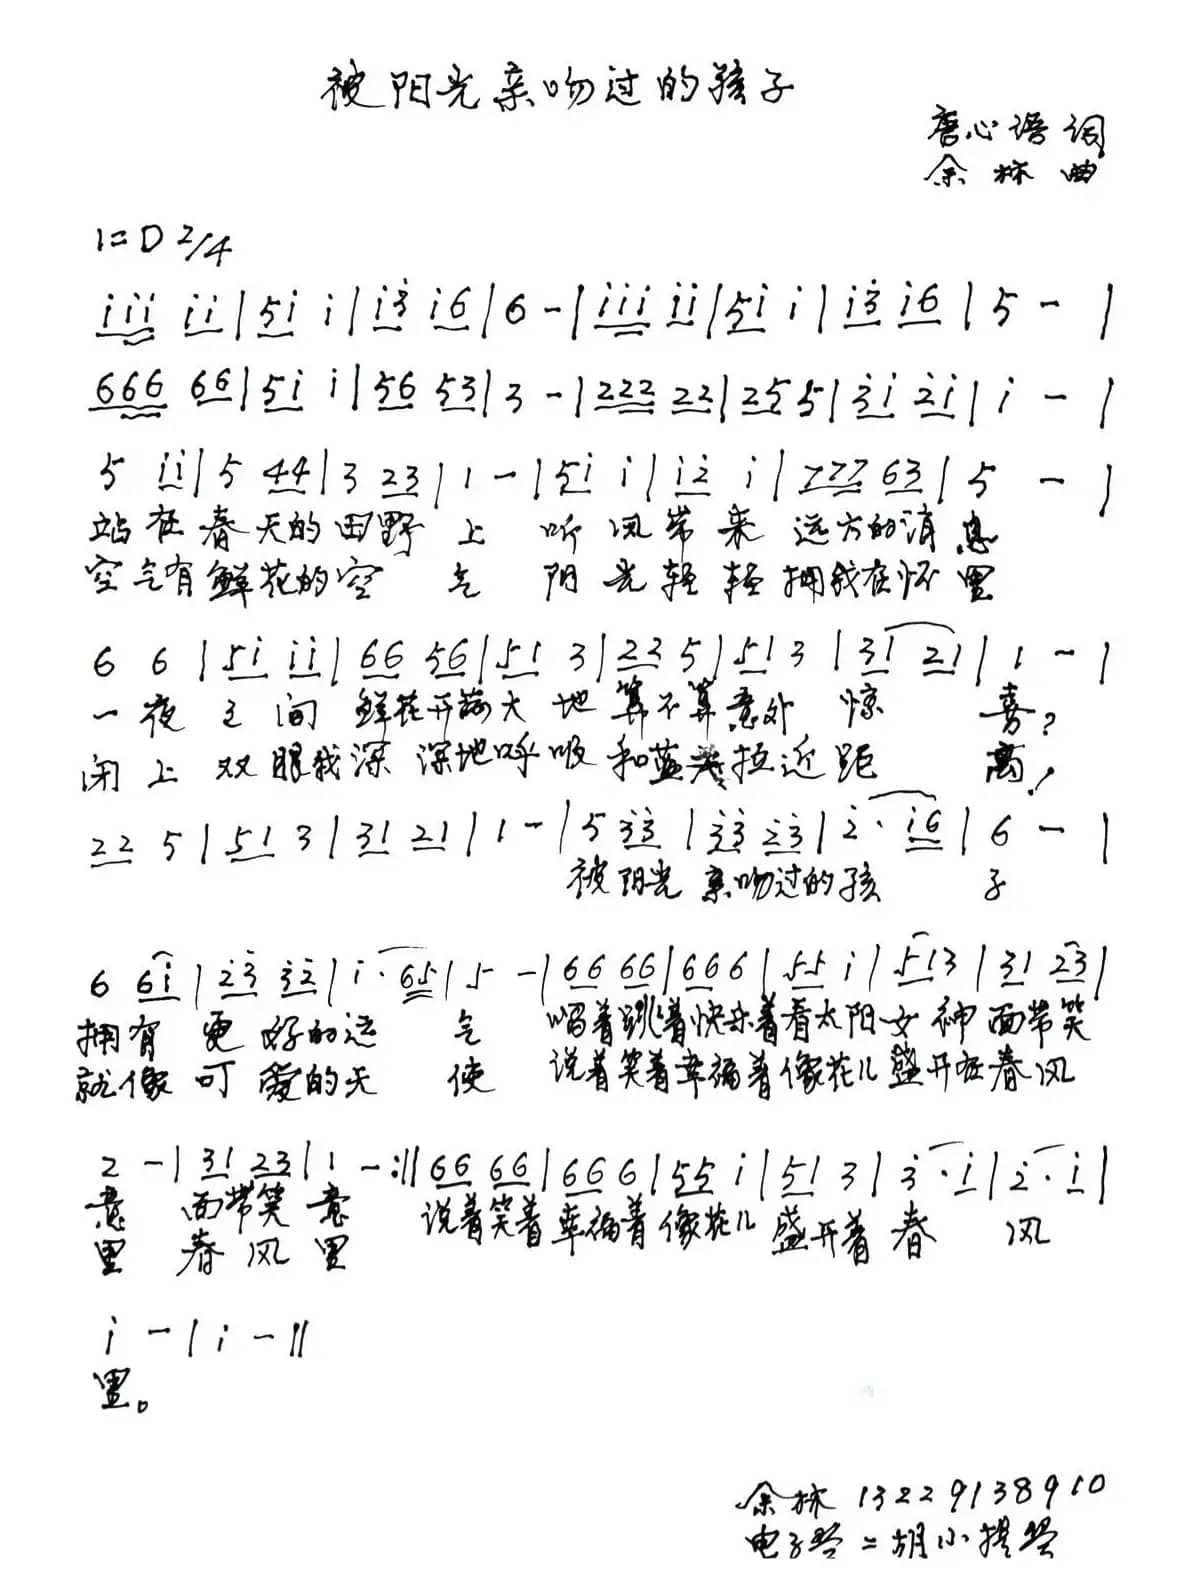 被阳光亲吻过的孩子
唐心语 词
余林 曲
1=D 2/4
i i i i i | 5 i i | i 3̇ i 6 | 6 - | i i i i i | 5 i i | i 3̇ i 6 | 5 - |
6 6 6 6 6 | 5 i i | 5 6 5 3 | 3 - | 2 2 2 2 2 | 2 5 5 | 3̇ i 2̇ i | i - |
5 i i | 5 4 4 | 3 2 3 | 1 - | 5 i i | i 2̇ i | 7 7 7 6 3 | 5 - |
站在春天的田野上 听风带来远方的消息
空气有鲜花的空气 阳光轻轻拥我在怀里
6 6 | 5 i i i | 6 6 5 6 | 5 1 3 | 2 3 5 | 5 1 3 | 3 1 2 1 | 1 - |
一夜之间鲜花开满大地算不算意外惊喜?
闭上双眼我深深地呼吸和蓝天拉近距离!
2 2 5 | 5 1 3 | 3 1 2 1 | 1 - | 5 3̇ 3̇ | 3̇ 3̇ 2̇ 3̇ | 2̇ · i 6 | 6 - |
被阳光亲吻过的孩子
6 6 i | 2̇ 3̇ 3̇ 2̇ | i · 6 5 | 5 - | 6 6 6 6 | 6 6 6 | 5 5 i | 5 1 3 | 3 1 2 3 |
拥有更好的运气 唱着跳着快乐着看太阳女神面带笑
就像可爱的天使 说着笑着幸福着像花儿盛开在春风
2 - | 3 1 2 3 | 1 - :|| 6 6 6 6 | 6 6 6 | 5 5 i | 5 1 3 | 3̇ · i | 2̇ · i |
意 面带笑意 说着笑着幸福着像花儿盛开着春风
里 春风里
i - | i - ||
里。
余林 13229138910
电子琴二胡小提琴